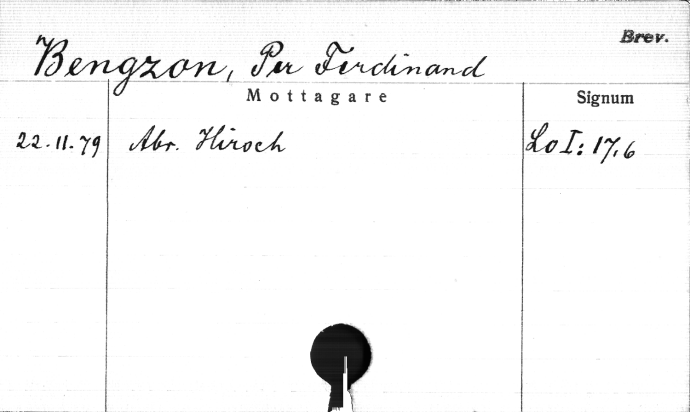 Brev.
Bengzon, Per Ferdinand
Mottagare Signum
22.11.79 Abr. Hirsch LoI: 17,6